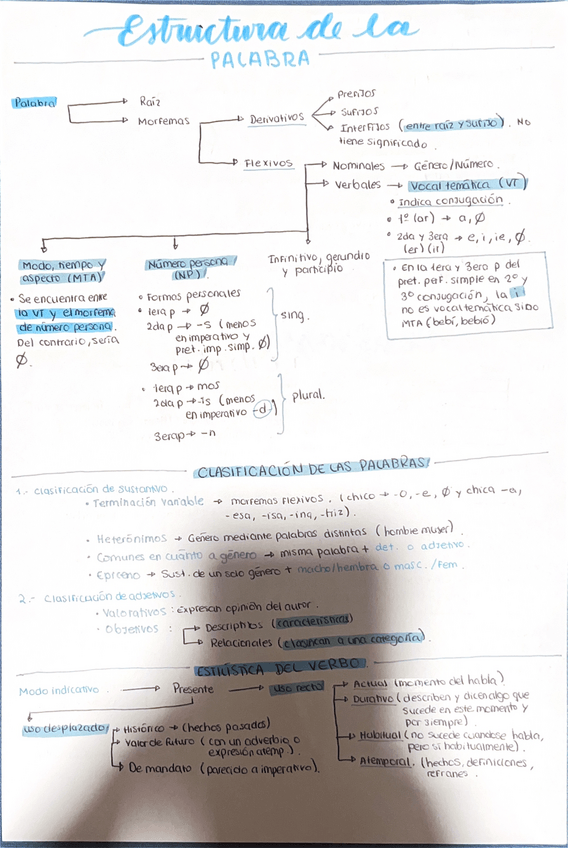 Estructura de la
PALABRA
Palabra
Raíz
Morfemas
Derivativos
Prefijos
Sufijos
Interfijos (entre raíz y sufijo). No
tiene significado.
Flexivos
Nominales → Género/Número.
Verbales → Vocal temática (VT)
• Indica conjugación.
• 1º (ar) → a, Ø
• 2da y 3era → e, i, ie, Ø.
(er) (ir)
• En la 1era y 3era p del
pret. perf. simple en 2º y
3º conjugación, la i
no es vocal temática sino
MTA (bebí, bebió)
Modo, tiempo y
aspecto (MTA)
• Se encuentra entre
la VT y el morfema
de número persona.
Del contrario, sería
Ø.
Número persona
(NP).
• Formas personales
• 1era p → Ø
2da p → -s (menos
en imperativo y
pret. imp. simp. Ø)
3era p → Ø
sing.
• 1era p → mos
2da p → -is (menos
en imperativo -d)
3era p → -n
plural.
Infinitivo, gerundio
y participio
CLASIFICACIÓN DE LAS PALABRAS
1.- Clasificación de sustantivo.
• Terminación variable → morfemas flexivos. (chico → -o, -e, Ø y chica -a,
-esa, -isa, -ina, -triz).
• Heterónimos → Género mediante palabras distintas (hombre mujer).
• Comunes en cuanto a género → misma palabra + det. o adjetivo.
• Epiceno → Sust. de un solo género + macho/hembra o masc. /Fem.
2.- Clasificación de adjetivos.
• Valorativos : expresan opinión del autor.
• Objetivos :
Descriptivos (características)
Relacionales (clasifican a una categoría).
ESTILÍSTICA DEL VERBO.
Modo indicativo. → Presente → uso recto
Actual (momento del habla)
Durativo (describen y dicen algo que
sucede en este momento y
por siempre)
Habitual (no sucede cuando se habla,
pero si habitualmente).
Atemporal. (hechos, definiciones,
refranes.
uso desplazado
Histórico → (hechos pasados)
Valor de futuro (con un adverbio o
expresión atemp.).
De mandato (parecido a imperativo).